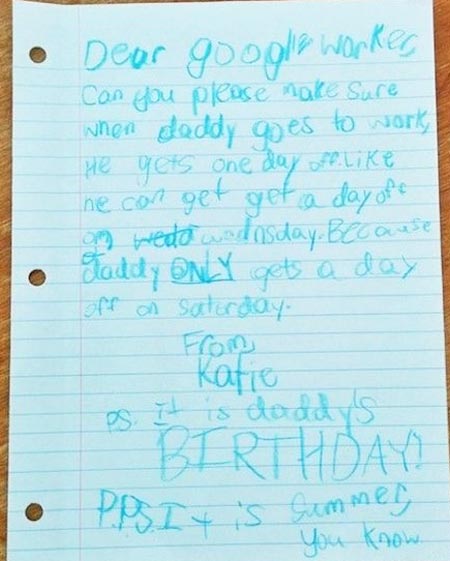 Dear google worker,
Can you please make sure
when daddy goes to work,
He gets one day off. Like
he can get get a day off
on wedd wednsday. BECause
daddy ONLY gets a day
off on saturday.
From,
Katie
P.S. It is daddy's
BIRTHDAY!
P.P.S. It is summer,
you know